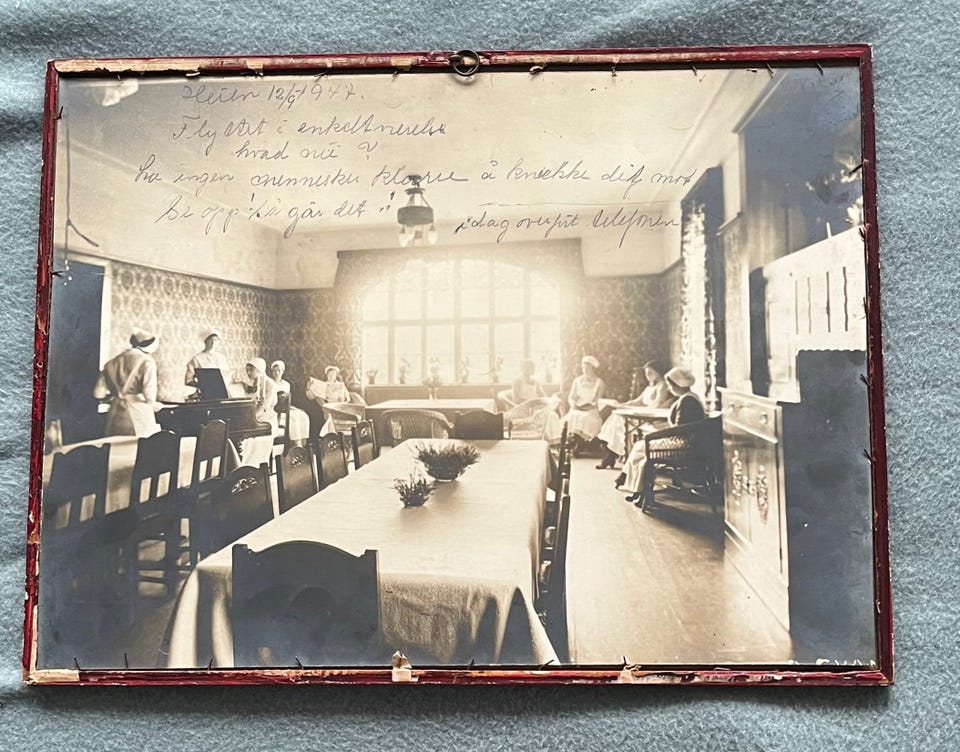 Heien 12/9 1947.
Flyttet i enkeltværelse
hvad nü ?
La ingen mennesker klare å knekke dit mot
Se opp! Så går det"
idag overflt telefonen